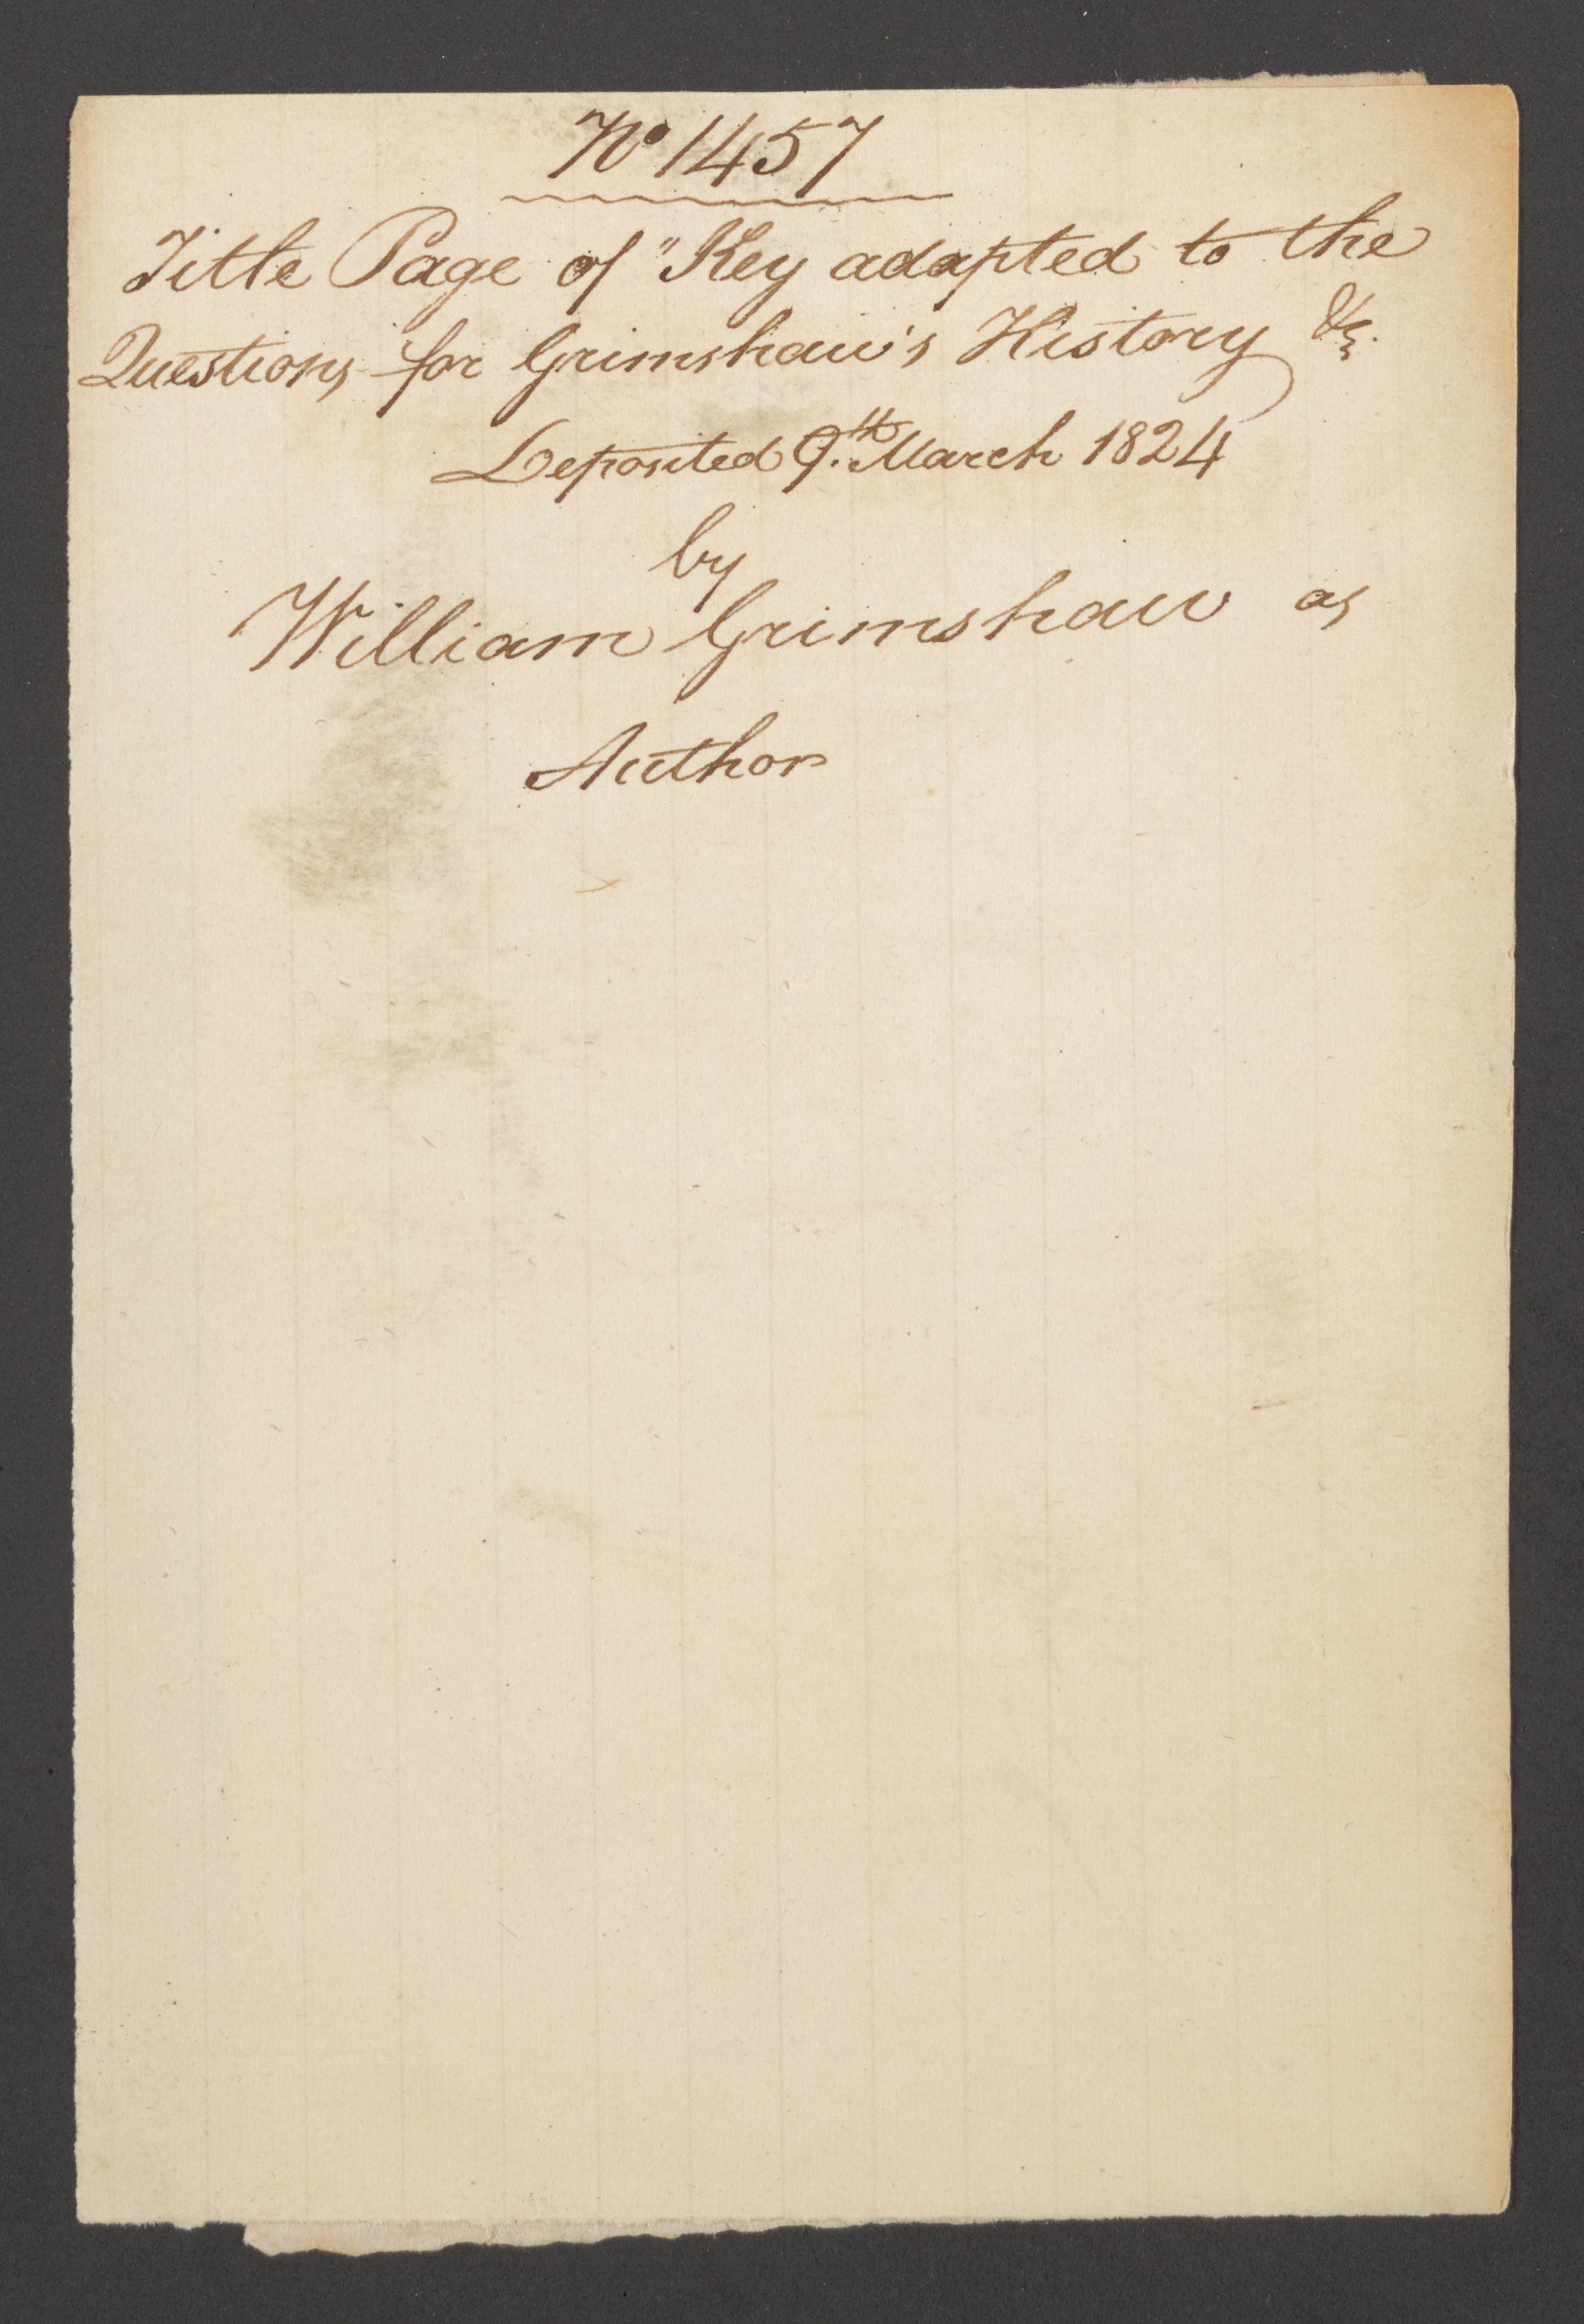 No 1457
Title Page of "Key adapted to the
Questions for Grimshaw's History &c.
Deposited 9.th March 1824
by
William Grimshaw as
Author